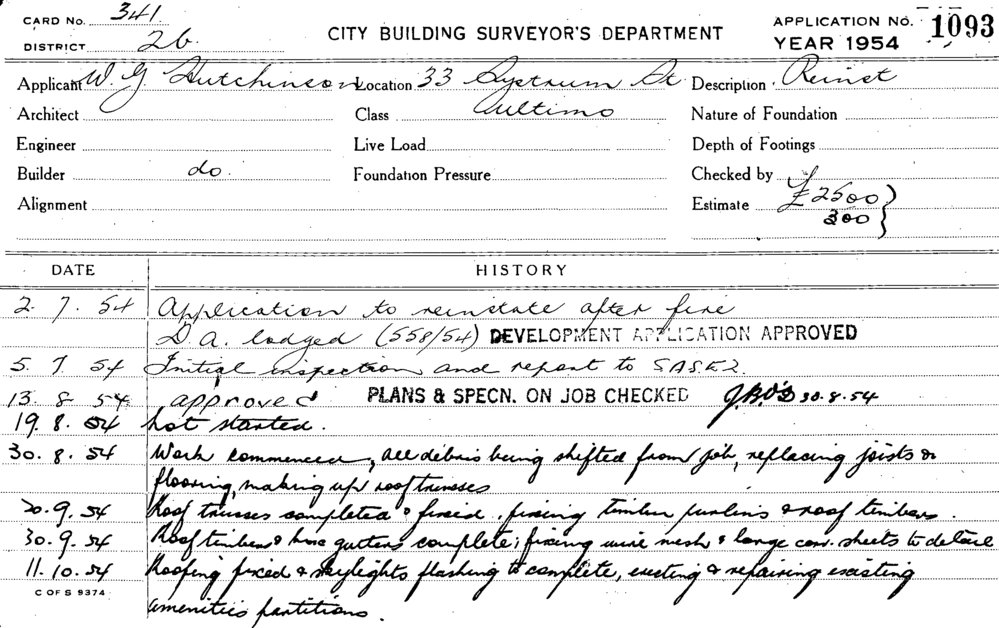 CARD No. 341
DISTRICT 26
CITY BUILDING SURVEYOR'S DEPARTMENT
APPLICATION No. 1093
YEAR 1954
Applicant W. G. Hutchinson Location 33 Systrum St Description Reinst
Architect Class Ultimo Nature of Foundation
Engineer Live Load Depth of Footings
Builder do. Foundation Pressure Checked by
Alignment Estimate £2500
300
DATE HISTORY
2. 7. 54 Application to reinstate after fire
D.A. lodged (558/54) DEVELOPMENT APPLICATION APPROVED
5. 7. 54 Initial inspection and report to
13. 8. 54 approved PLANS & SPECN. ON JOB CHECKED 30.8.54
19. 8. 54 not started.
30. 8. 54 Work commenced, all debris being shifted from job, replacing joists &
flooring, making up roof trusses
20. 9. 54 Roof trusses completed & fixed, fixing timber purlins & roof timbers.
30. 9. 54 Roof timbers & box gutters complete; fixing wire mesh & large corr. sheets to detail
11. 10. 54 Roofing fixed & skylights flashing to complete, erecting & repairing existing
C OF S 9374
amenities partitions.